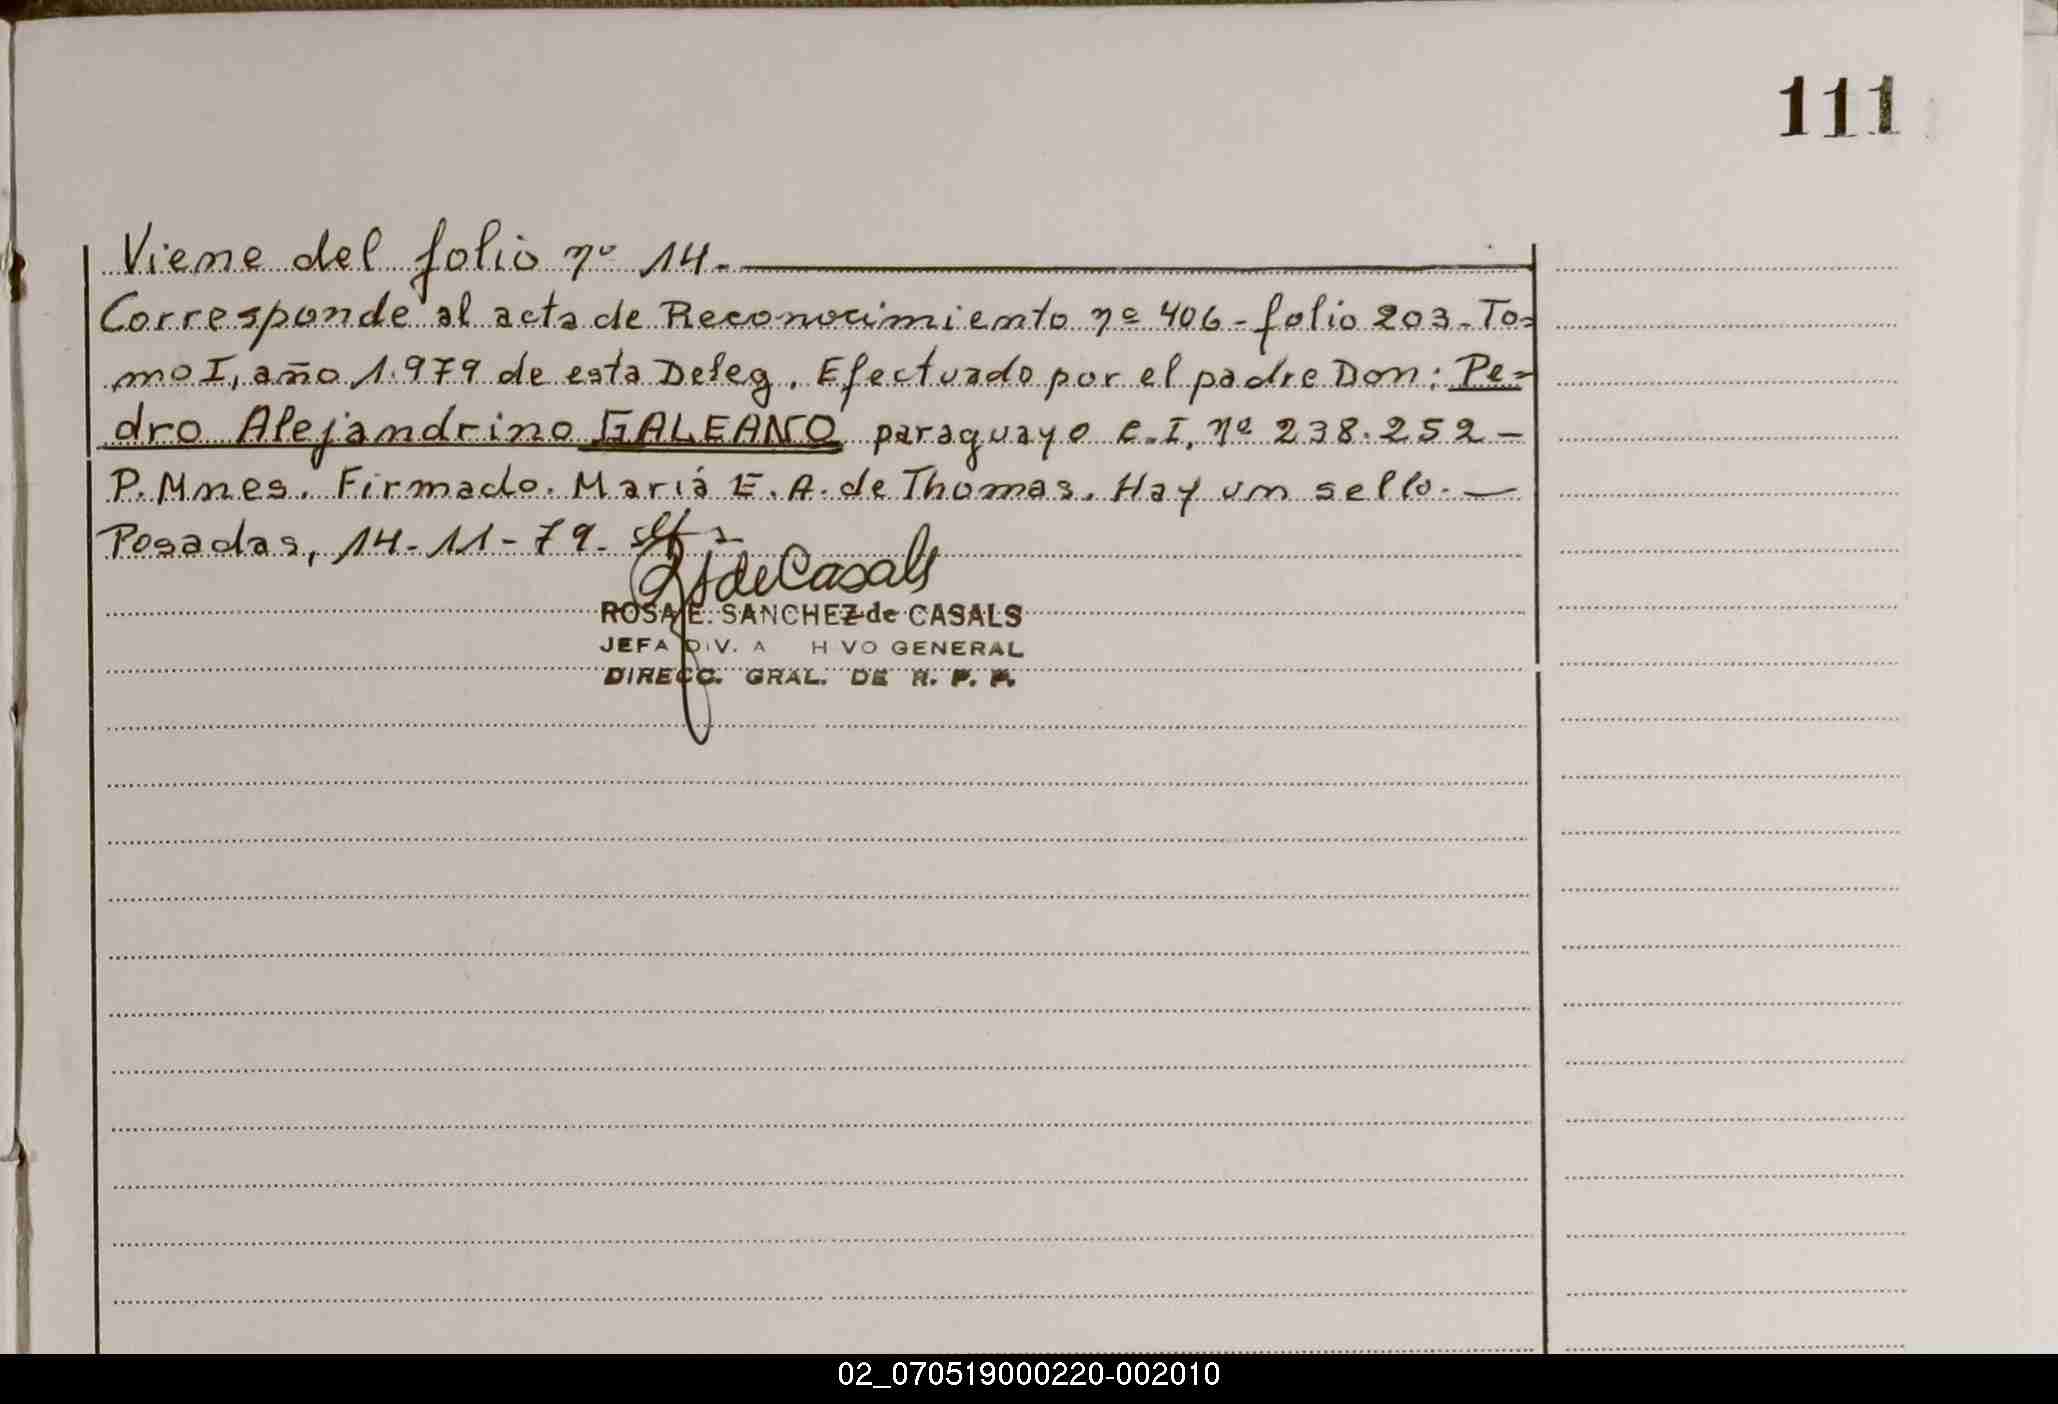 111
Viene del folio nº 14.
Corresponde al acta de Reconocimiento nº 406-folio 203-To=
mo I, año 1.979 de esta Deleg. Efectuado por el padre Don: Pe=
dro Alejandrino GALEANO paraguayo C.I. nº 238.252-
P. Mnes. Firmado. Maria E. A. de Thomas. Hay un sello.-
Posadas, 14-11-79.
de Casals
ROSA E. SANCHEZ de CASALS
JEFA DIV. A H VO GENERAL
DIRECC. GRAL. DE R. P. P.
02_070519000220-002010